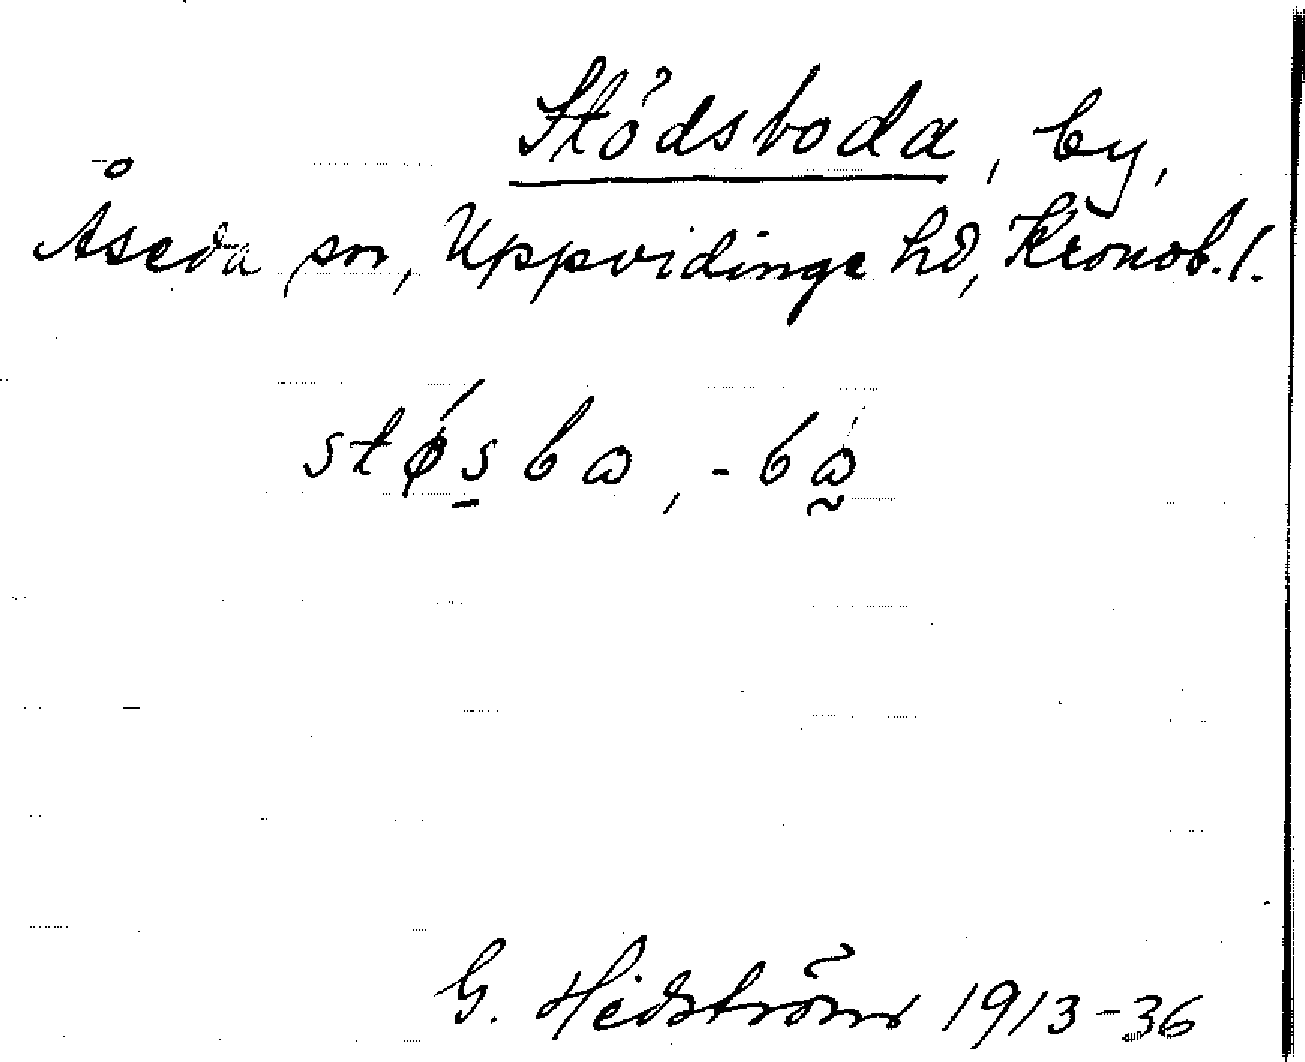 Stödsboda, by,
Åseda sn, Uppvidinge hd, Kronob. l.
stǿs̠ba, -ba̰
G. Hedström 1913-36